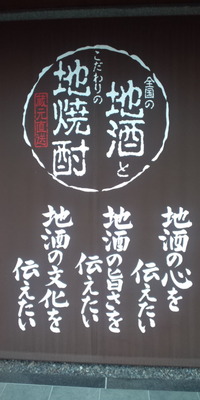 全国の
地酒と
こだわりの
地焼酎
蔵元直送
地酒の心を
伝えたい
地酒の旨さを
伝えたい
地酒の文化を
伝えたい